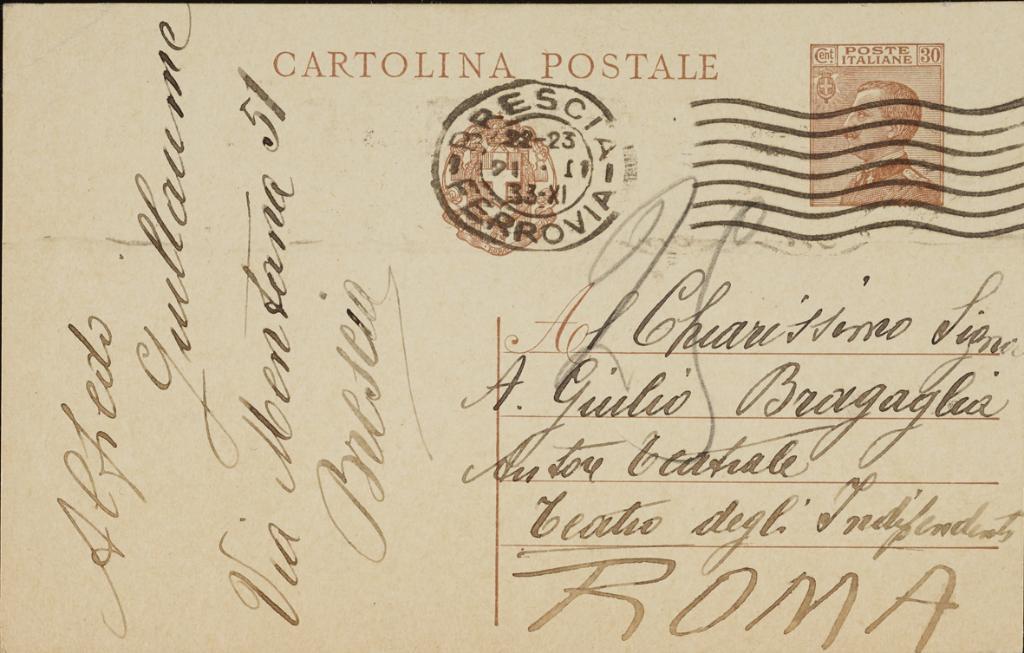 CARTOLINA POSTALE
Cent POSTE ITALIANE 30
BRESCIA
22-23
21·II
33-XI
FERROVIA
Alfredo
Guillaume
Via Mentana 51
Brescia
25
Al Chiarissimo Signor
A. Giulio Bragaglia
Autore Teatrale
Teatro degli Indipendenti
ROMA